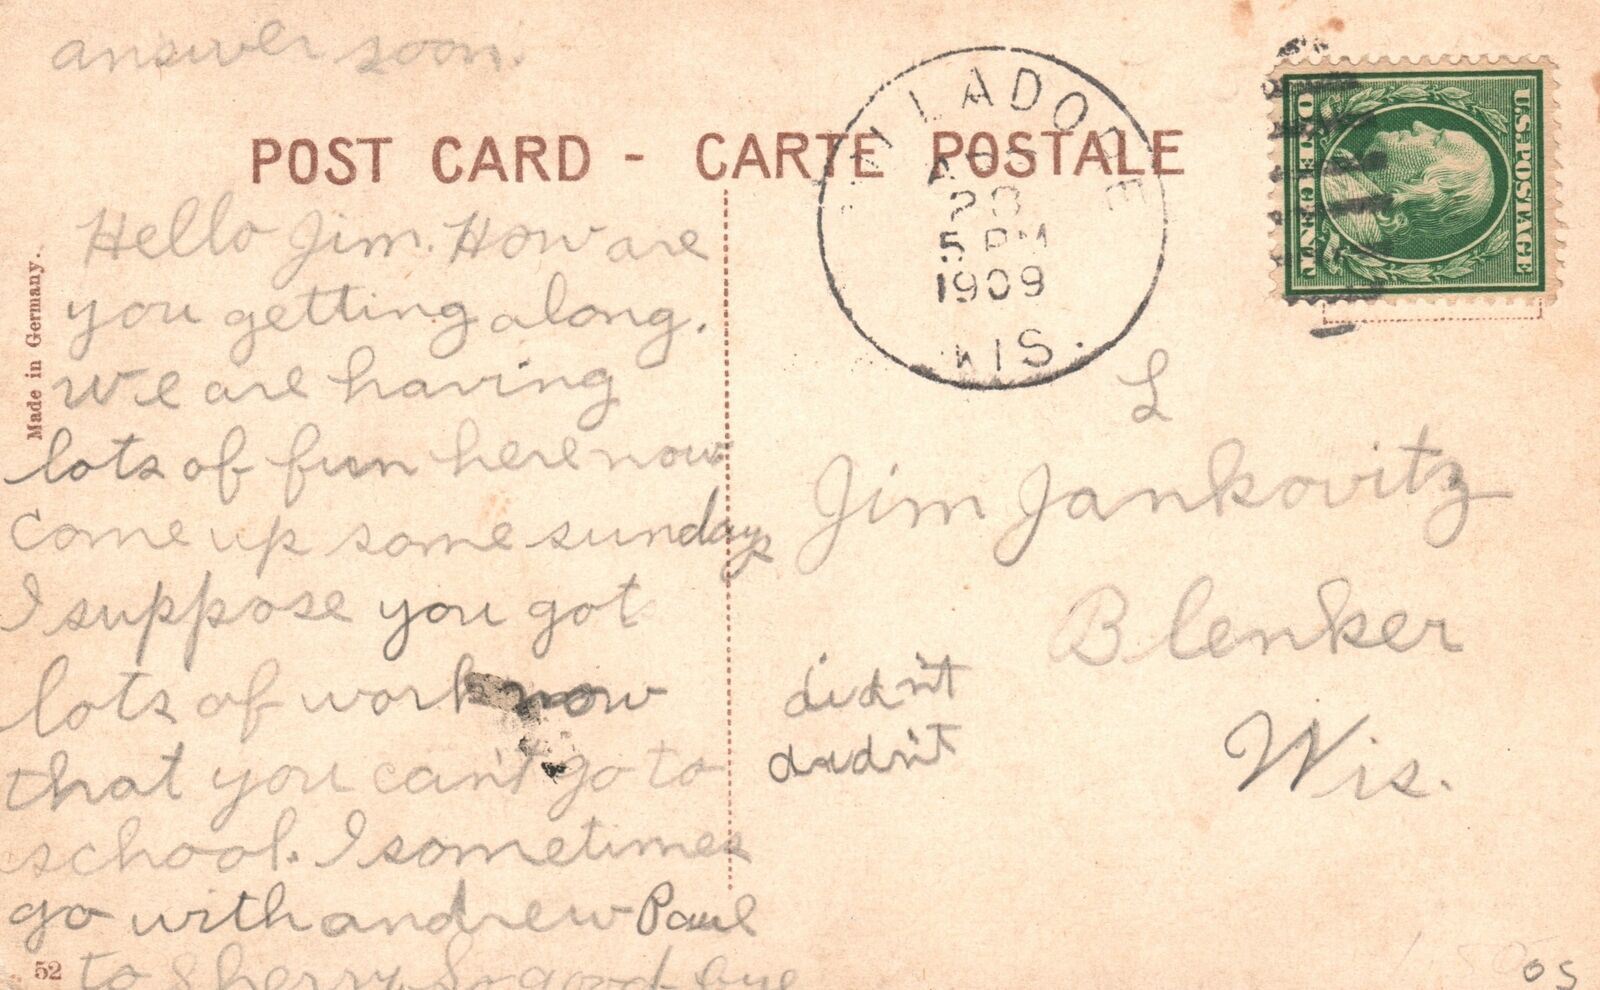 answer soon.
POST CARD - CARTE POSTALE
Made in Germany.
Hello Jim. How are
you getting along.
We are having
lots of fun here now
come up some sunday
I suppose you got
lots of work now
that you can't go to
school. I sometimes
go with andrew Paul
to Sherry. So good bye
52
5 PM
1909
WIS.
U.S. POSTAGE
ONE CENT
L
Jim Jankovitz
Blenker
Wis.
didn't
didn't
05